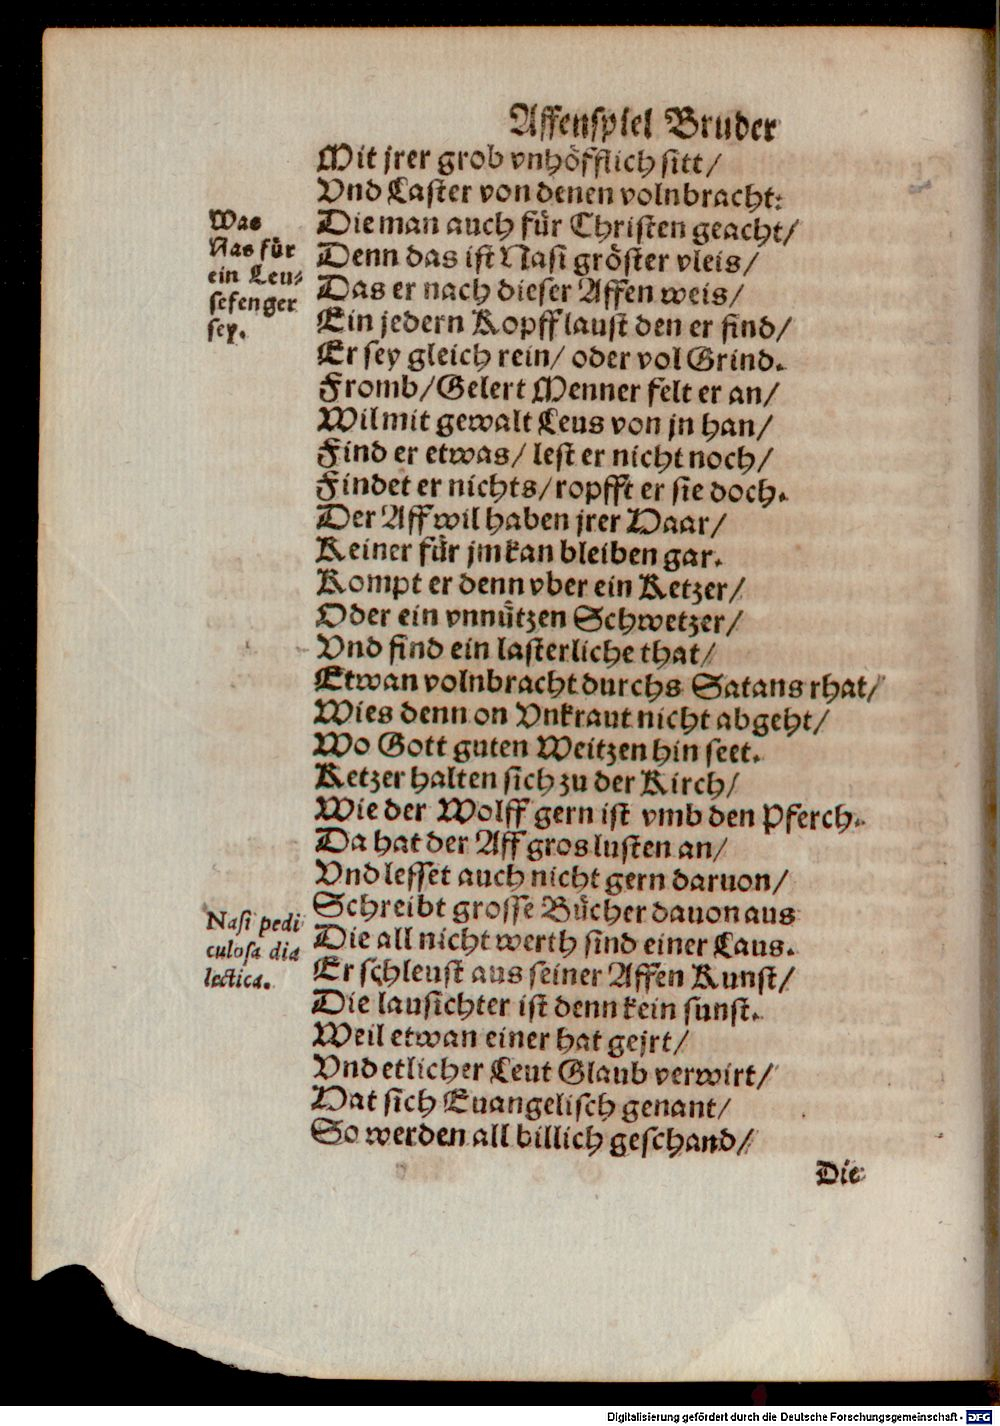 Affenspiel Bruder
Mit jrer grob vnhöfflich sitt/
Vnd Laster von denen volnbracht:
Was
Nas für
ein Leu⸗
sefenger
sey.
Die man auch für Christen geacht/
Denn das ist Nasi gröster vleis/
Das er nach dieser Affen weis/
Ein jedern Kopff laust den er find/
Er sey gleich rein/ oder vol Grind.
Fromb/ Gelert Menner felt er an/
Wil mit gewalt Leus von jn han/
Find er etwas/ lest er nicht noch/
Findet er nichts/ ropfft er sie doch.
Der Aff wil haben jrer Haar/
Keiner für jm kan bleiben gar.
Kompt er denn vber ein Ketzer/
Oder ein vnnützen Schwetzer/
Vnd find ein lasterliche that/
Etwan volnbracht durchs Satans rhat/
Wies denn on Vnkraut nicht abgeht/
Wo Gott guten Weitzen hin seet.
Ketzer halten sich zu der Kirch/
Wie der Wolff gern ist vmb den Pferch.
Da hat der Aff gros lusten an/
Vnd lesset auch nicht gern daruon/
Schreibt grosse Bücher dauon aus
Nasi pedi
culosa dia
lectica.
Die all nicht werth sind einer Laus.
Er schleust aus seiner Affen Kunst/
Die lausichter ist denn kein sunst.
Weil etwan einer hat gejrt/
Vnd etlicher Leut Glaub verwirt/
Hat sich Euangelisch genant/
So werden all billich geschand/
Die
Digitalisierung gefördert durch die Deutsche Forschungsgemeinschaft - DFG